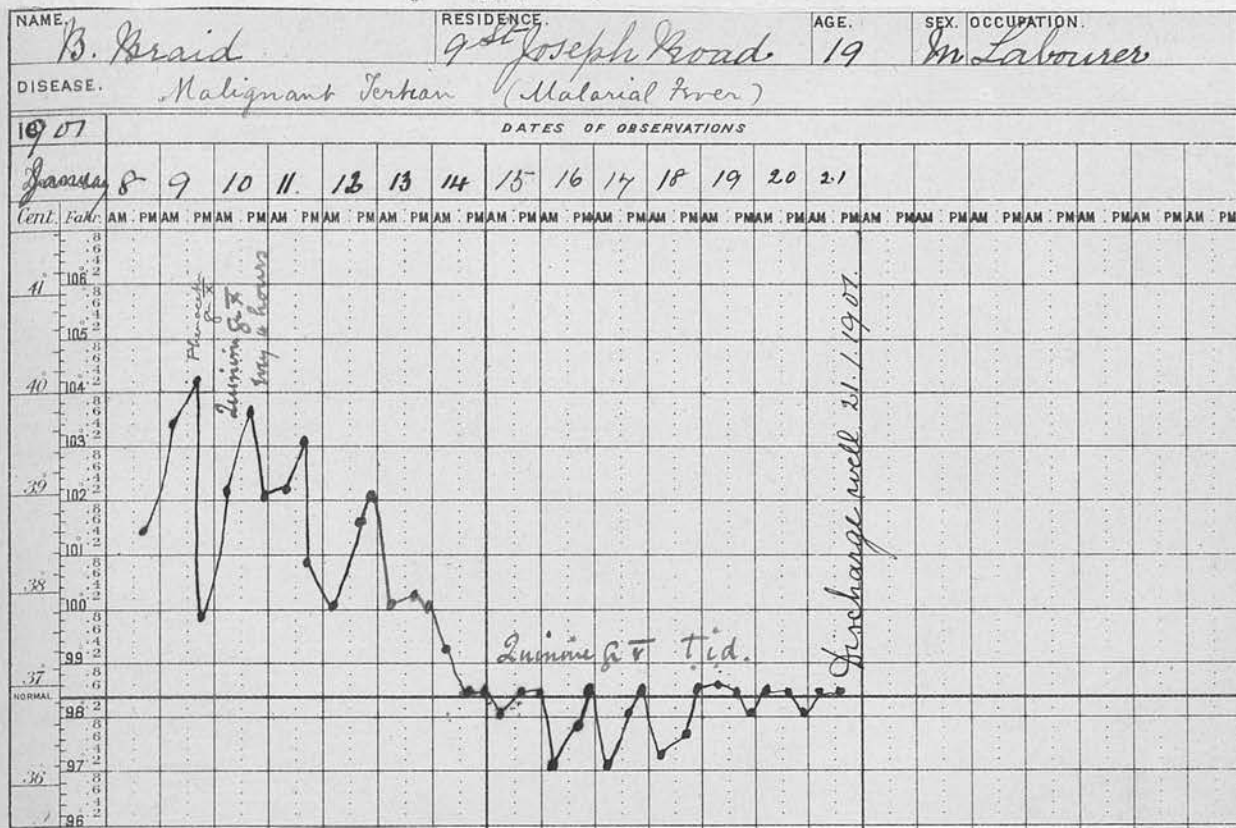 NAME. RESIDENCE. AGE. SEX. OCCUPATION.
B. Braid 9 St Joseph Road 19 M Labourer
DISEASE. Malignant Tertian (Malarial Fever)
1907 DATES OF OBSERVATIONS
January 8 9 10 11. 12 13 14 15 16 17 18 19 20 21
Cent. Fahr. AM PM AM PM AM PM AM PM AM PM AM PM AM PM AM PM AM PM AM PM AM PM AM PM AM PM AM PM AM PM AM PM AM PM AM PM AM PM AM PM AM PM
41° 106°
105°
40° 104°
103°
39° 102°
101°
38° 100°
99°
37°
NORMAL
98°
97°
36°
96°
Phenacetin
gr X
Quinine gr X
every 4 hours
Quinine gr V T.i.d.
Discharge well 21.1.1907.